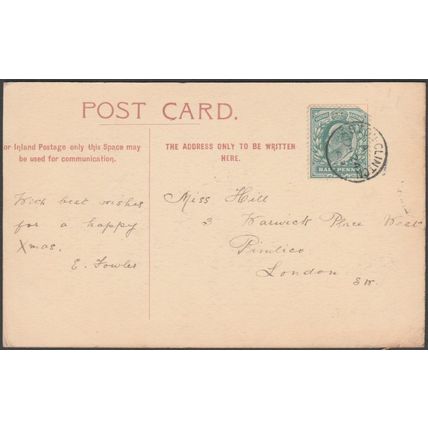 POST CARD.
or Inland Postage only this Space may
be used for communication.
THE ADDRESS ONLY TO BE WRITTEN
HERE.
With best wishes
for a happy
Xmas.
E. Fowler
Miss Hill
3 Warwick Place West
Pimlico
London
S.W.
HALF PENNY